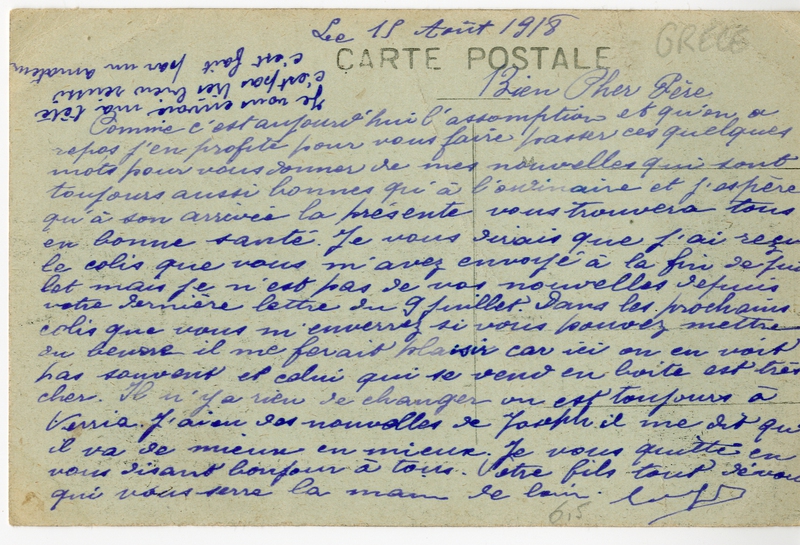 Le 15 Août 1918
GRECE
CARTE POSTALE
Je vous envoie ma tête
c'est pas très bien reussi
c'est fait par un amateur
Bien Cher Père
Comme c'est aujourd'hui l'assomption et qu'on a
repos j'en profite pour vous faire passer ces quelques
mots pour vous donner de mes nouvelles qui sont
toujours aussi bonnes qu'à l'ordinaire et j'espère
qu'à son arrivée la présente vous trouvera tous
en bonne santé. Je vous dirais que j'ai reçu
le colis que vous m'avez envoyé à la fin de jui
let mais je n'est pas de vos nouvelles depuis
votre dernière lettre du 9 juillet. Dans les prochains
colis que vous m'enverrez si vous pouvez mettre
du beurre il me ferait plaisir car ici on en voit
pas souvent et celui qui se vend en boite est très
cher. Il n'y a rien de changer on est toujours à
Verria. J'ai eu des nouvelles de Joseph il me dit qu'
il va de mieux en mieux. Je vous quitte en
vous disant bonjour à tous. Votre fils tout dévou
qui vous serre la main de loin.
6,5